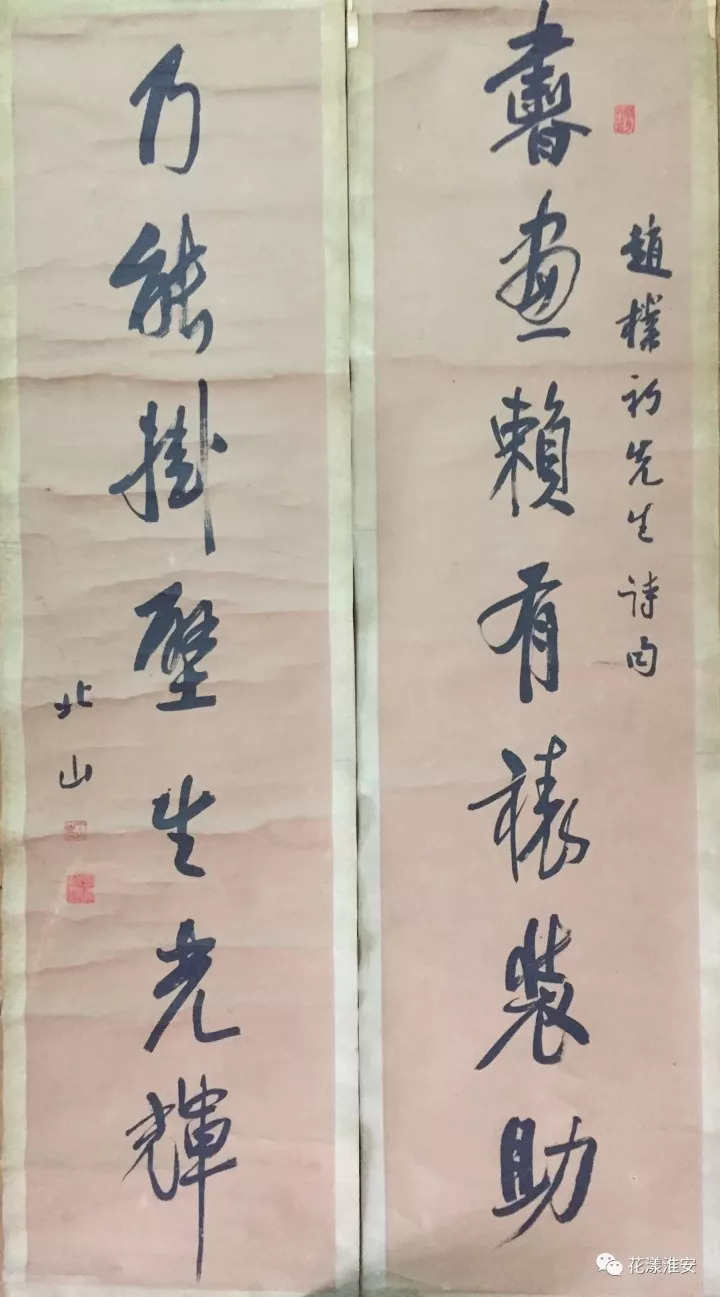 趙樸初先生诗句
書畫賴有裱裝助
乃能掛壁生光輝
北山
花漾淮安